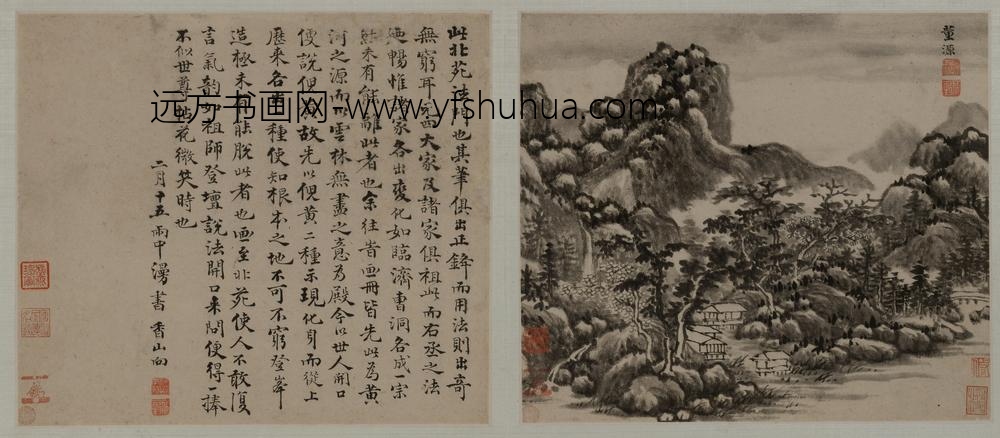 董源
此北苑法也其筆俱出正鋒而用法則出奇
無窮耳四大家及諸家俱祖此而右丞之法
暢惟諸家各出變化如臨濟曹洞各成一宗
未有能離此者也余往昔畫冊皆先此為黃
河之源而以雲林無盡之意為殿今以世人開口
便說倪故先以倪黃二種示現化身而從上
歷來名種使知根本之地不可不窮登峯
造極未有能脫此者也畫至北苑使人不敢復
言氣韵如祖師登壇說法開口来問便得一捧
不似世尊拈花微笑時也
二月十五雨中漫書 香山向
远方书画网 www.yfshuhua.com